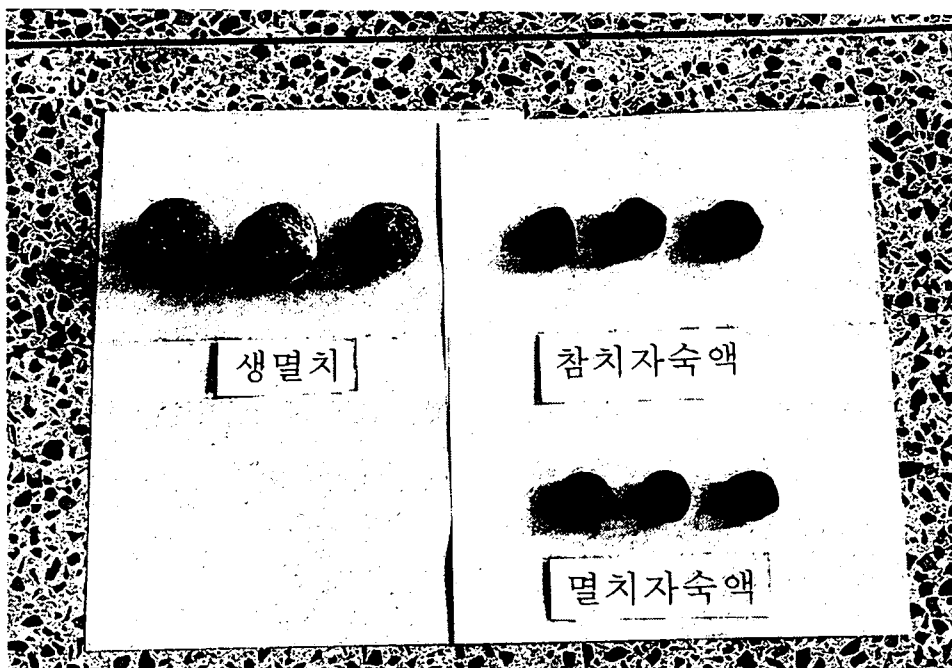 생멸치
참치자숙액
멸치자숙액